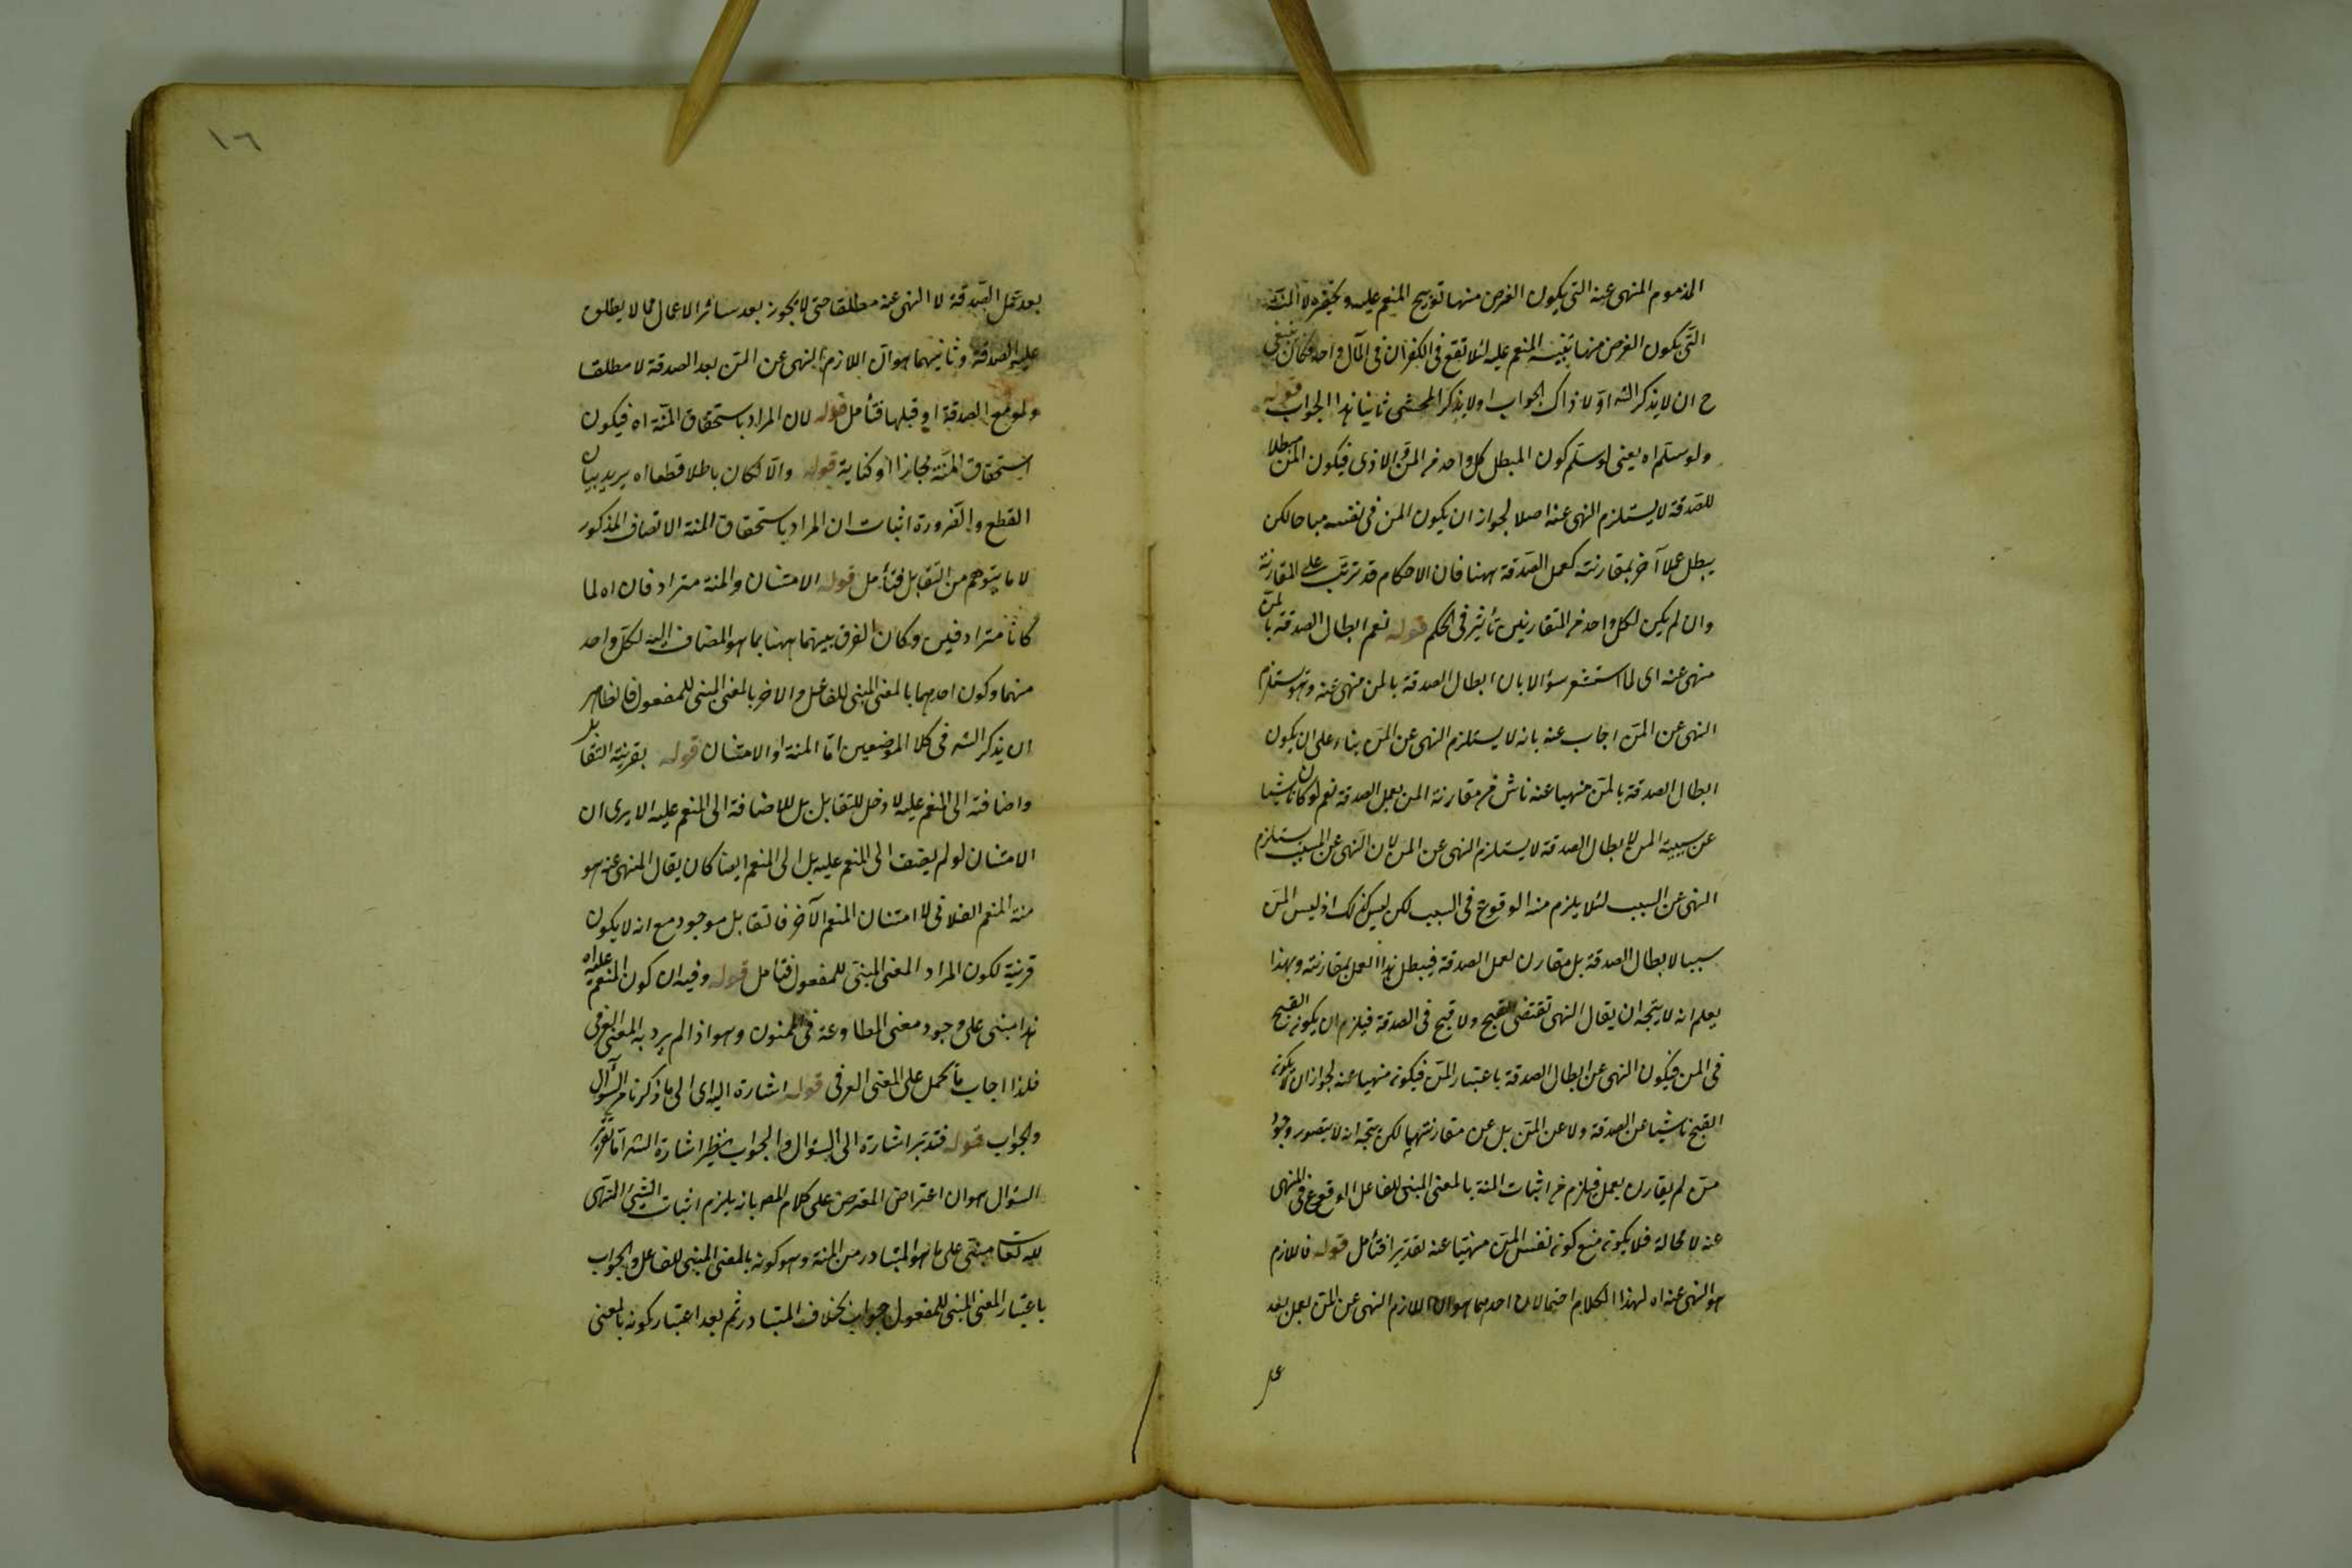 المذموم المنهى عنه التى يكون الغرض منها توبيخ المنعم عليه وتحقيره لا المنة
التى يكون الغرض منها تنبيه المنعم عليه لئلا تقع فى الكفران فى المآل واحد وكان ينبغى
ح ان لا يذكر الشه اوّلا ذاك الجواب او لا يذكر المحشى ثانيا هذا الجواب قوله
ولو سلم اه يعنى لو سلم كون المبطل كل واحد من المن والاذى فيكون المن مبطلا
للصدقة لا يستلزم النهى عنه اصلا لجواز ان يكون المن فى نفسه مباحا لكن
يبطل عملا آخر بمقارنته كعمل الصدقة ههنا فان الاحكام قد ترتب على المقارنة
وان لم يكن لكل واحد من المتقارنين تأثير فى الحكم قوله نعم ابطال الصدقة بالمن
منهى عنه اى لما استشعر سؤالا بان ابطال الصدقة بالمن منهى عنه وهو يستلزم
النهى عن المن اجاب عنه بانه لا يستلزم النهى عن المن بناء على ان يكون
ابطال الصدقة بالمن منهيا عنه ناش من مقارنة المن بعمل الصدقة نعم لو كان ناشيا
عن سببية المن لابطال الصدقة لا يستلزم النهى عن المن لان النهى عن المسبب يستلزم
النهى عن السبب لئلا يلزم منه الوقوع فى السبب لكن ليس كذلك اذ ليس المن
سببا لابطال الصدقة بل مقارن لعمل الصدقة فيبطل هذا العمل بمقارنته وبهذا
يعلم انه لا يتجه ان يقال النهى تقتضى القبح ولا قبح فى الصدقة فيلزم ان يكون القبح
فى المن فيكون النهى عن ابطال الصدقة باعتبار المن فيكون منهيا عنه لجواز ان لا يكون
القبح ناشيا عن الصدقة ولا عن المن بل عن مقارنتهما لكن يتجه انه لا يتصور وجود
من لم يقارن بعمل فيلزم من اثبات المنة بالمعنى المبنى للفاعل الوقوع فى المنهى
عنه لا محالة فلا يكون منع كون نفس المن منهيا عنه تقديرا فتأمل قوله فاللازم
هو النهى عنه اه لهذا الكلام احتمالان احدهما هو ان اللازم النهى عن المن بعمل بعد
بعد عمل الصدقة لا النهى عنه مطلقا حتى لا يجوز بعد سائر الاعمال مما لا يطلق
عليه الصدقة وثانيهما هو ان اللازم النهى عن المن بعد الصدقة لا مطلقا
ولو مع الصدقة او قبلها فتأمل قوله لان المراد باستحقاق المنة اه فيكون
استحقاق المنة مجازا او كناية قوله والا لكان باطلا قطعا اه يريد ببيان
القطع والضرورة اثبات ان المراد باستحقاق المنة الاتصاف المذكور
لا ما يتوهم من التقابل فتأمل قوله الامتنان والمنة مترادفان اه لما
كانا مترادفين وكان الفرق بينهما ههنا بما هو المضاف اليه لكل واحد
منهما وكون احدهما بالمعنى المبنى للفاعل والاخر بالمعنى المبنى للمفعول فالظاهر
ان يذكر الشه فى كلا الموضعين اما المنة او الامتنان قوله بقرينة التقابل
واضافته الى المنعم عليه لا دخل للتقابل بل للاضافة الى المنعم عليه الا يرى ان
الامتنان لو لم يضف الى المنعم عليه بل الى المنعم ايضا كان يقال المنهى عنه هو
منة المنعم الفلانى لا امتنان المنعم الآخر فالتقابل موجود مع انه لا يكون
قرينة لكون المراد المعنى المبنى للمفعول فتأمل قوله وفيه ان كون المنعم عليه اه
هذا مبنى على وجود معنى المطاوعة فى الممنون وهو اذا لم يرد به المعنى العرفى
فلذا اجاب بالحمل على المعنى العرفى قوله اشارة اليه اى الى ما ذكرنا من السؤال
والجواب قوله فتدبر اشارة الى السؤال والجواب نظير اشارة الشه اما تقرير
السؤال هو ان اعتراض المعترض على كلام المص بانه يلزم اثبات الشىء المنهى
لله تعالى مبنى على ما هو المتبادر من المنة وهو كونه بالمعنى المبنى للفاعل والجواب
باعتبار المعنى المبنى للمفعول جواب بخلاف المتبادر ثم بعد اعتبار كونه بالمعنى
١٦